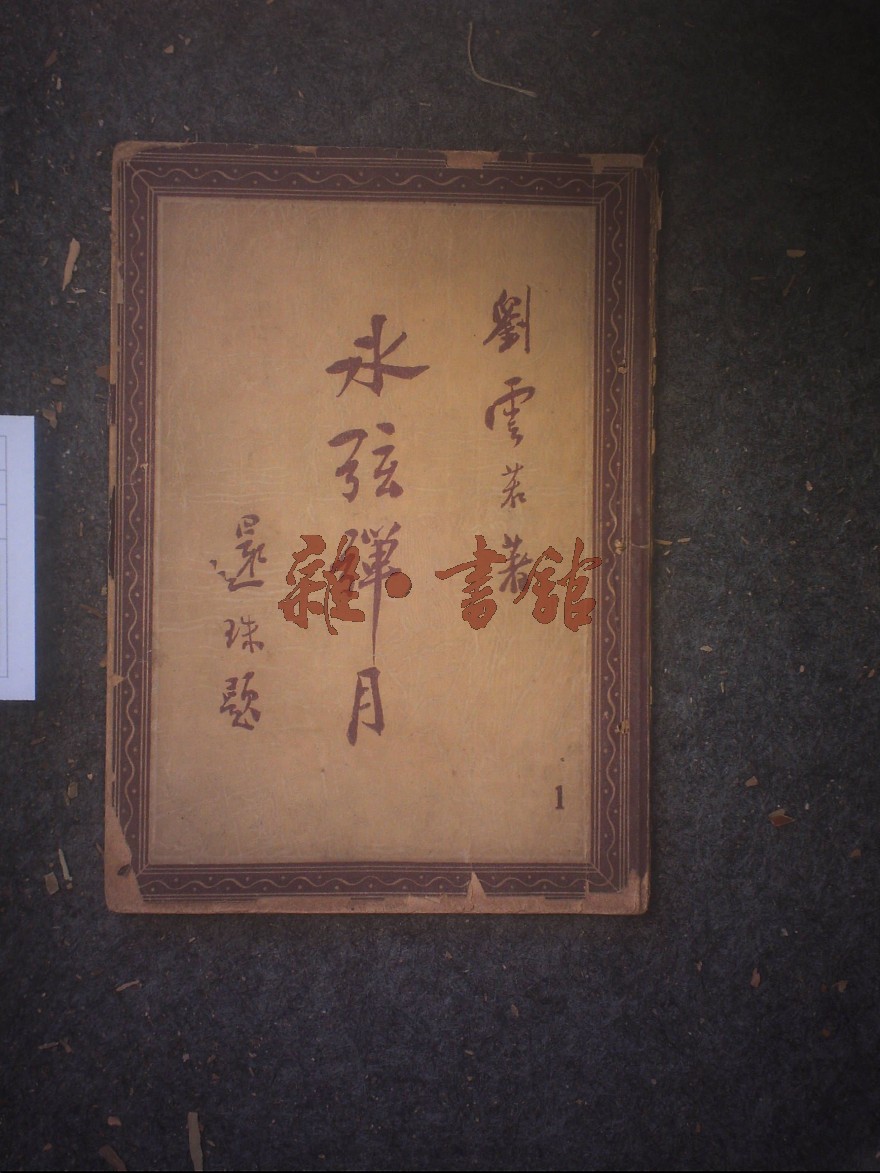 劉雲若著
冰弦彈月
還珠題
1
雜·書館